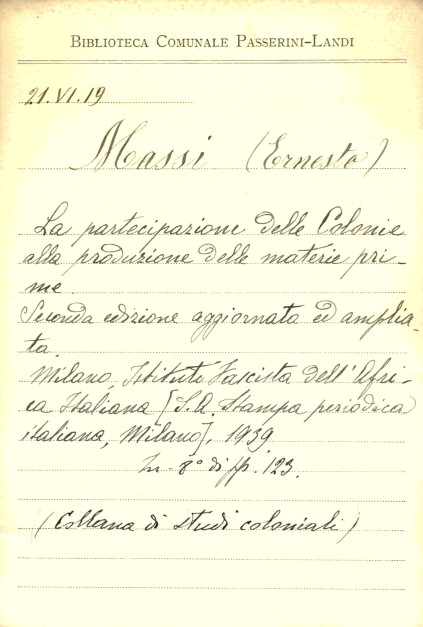 BIBLIOTECA COMUNALE PASSERINI-LANDI
21.VI.19
Massi (Ernesto)
La partecipazione delle Colonie
alla produzione delle materie pri-
me.
Seconda edizione aggiornata ed amplia-
ta.
Milano, Istituto Fascista dell'Afri-
ca Italiana [S.A. Stampa periodica
italiana, Milano], 1939
In-8° di pp. 123.
(Collana di studi coloniali)